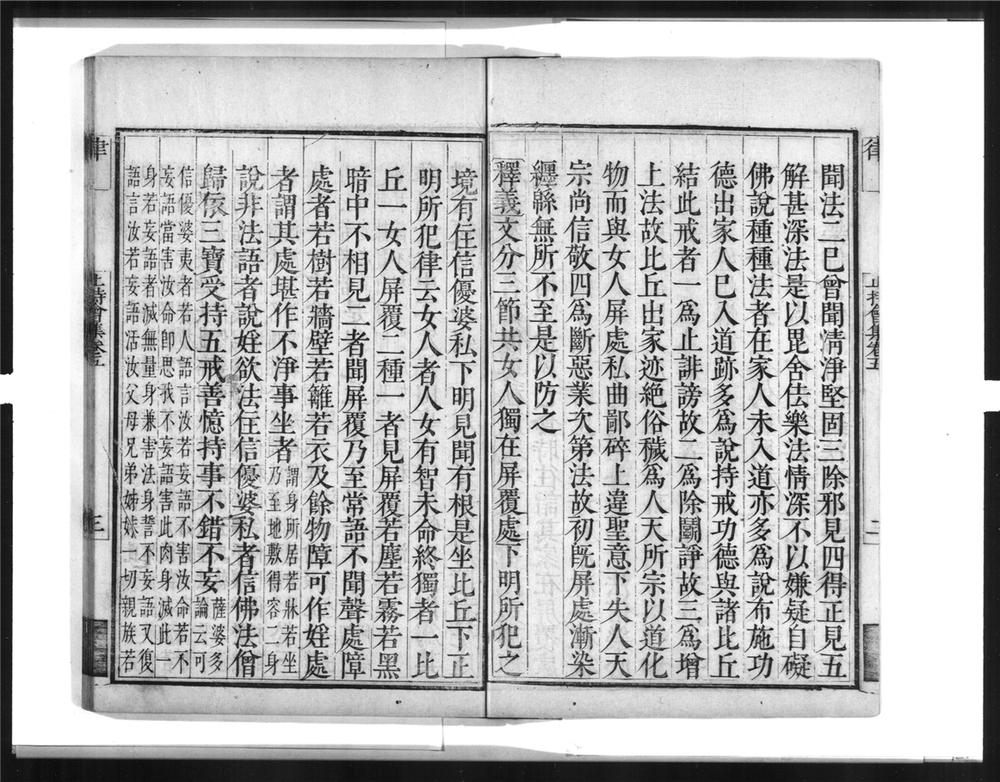 聞法二已曾聞淸淨堅固三除邪見四得正見五
解甚深法是以毘舍佉樂法情深不以嫌疑自礙
佛說種種法者在家人未入道亦多爲說布施功
德出家人已入道跡多爲說持戒功德與諸比丘
結此戒者一爲止誹謗故二爲除鬭諍故三爲增
上法故比丘出家迹絕俗穢爲人天所宗以道化
物而與女人屏處私曲鄙碎上違聖意下失人天
宗尚信敬四爲斷惡業次第法故初旣屏處漸染
纏緜無所不至是以防之
釋義文分三節共女人獨在屏覆處下明所犯之
境有住信優婆私下明見聞有根是坐比丘下正
明所犯律云女人者人女有智未命終獨者一比
丘一女人屏覆二種一者見屏覆若塵若霧若黑
暗中不相見二者聞屏覆乃至常語不聞聲處障
處者若樹若牆壁若籬若衣及餘物障可作婬處
者謂其處堪作不淨事坐者謂身所居若牀若坐乃至地敷得容二身
說非法語者說婬欲法住信優婆私者信佛法僧
歸依三寶受持五戒善憶持事不錯不妄薩婆多論云可
信優婆夷者若人語言汝若妄語不害汝命若不
妄語當害汝命卽思我不妄語害此肉身滅此一
身若妄語者滅無量身兼害法身誓不妄語又復
語言汝若妄語活汝父母兄弟姊妹一切親族若
律
止持會集卷五
二
律
止持會集卷五
三